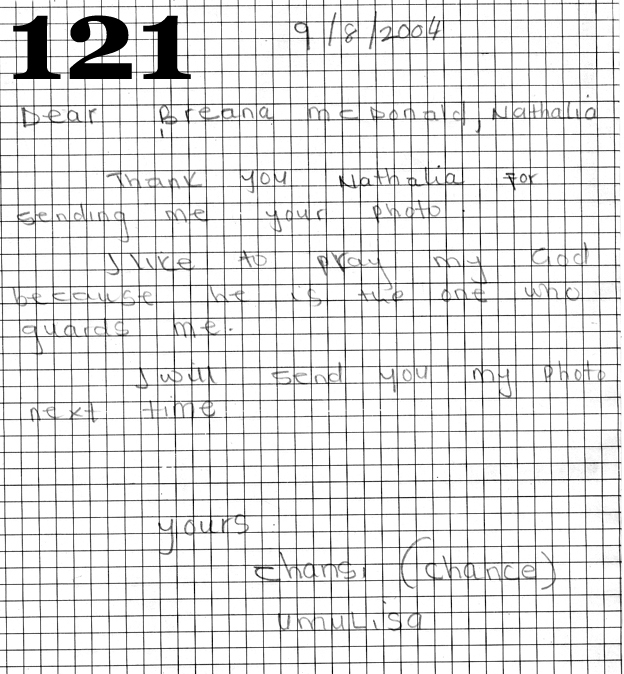 121
9/8/2004
Dear Breana McDonald, Nathalia
Thank you Nathalia For
sending me your photo.
I like to pray my God
because he is the one who
guards me.
I will send you my photo
next time
yours
chansi (chance)
UMULisa